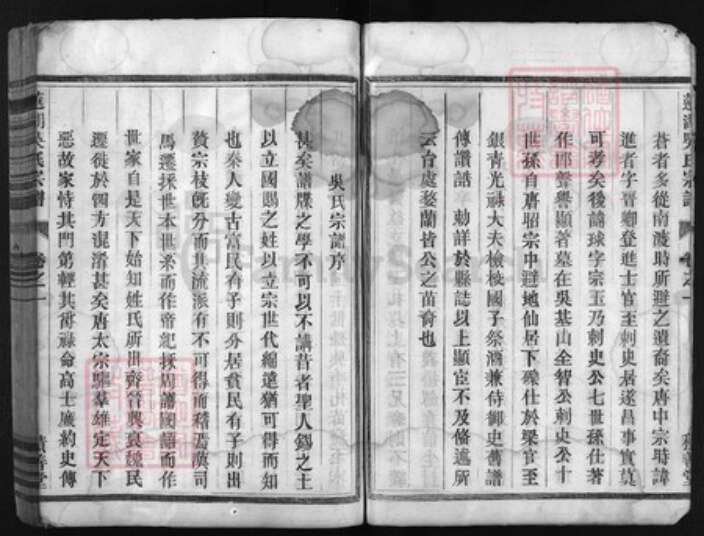 蒼者多從南渡時所避之遺裔矣唐中宗時諱
進者字晉卿登進士官至刺史居遂昌事實莫
可考矣後諱球字宗玉乃刺史公七世孫仕著
作郎聲譽顯著墓在吳基山全智公刺史公十
世孫自唐昭宗中避地仙居下磜仕於梁官至
銀青光祿大夫檢校國子祭酒兼侍御史舊譜
傳讚誥 勅詳於縣誌以上顯宦不及備述所
云台處婺蘭皆公之苗裔也
吳氏宗譜序
甚矣譜牒之學不可以不講昔者聖人錫之土
以立國賜之姓以立宗世代綿遠猶可得而知
也秦人變古富民有子則分居貧民有子則出
贅宗枝旣分而其流派有不可得而稽焉漢司
馬遷採世本世系而作帝紀採周譜國語而作
世家自是天下始知姓氏所出齊晉興衰魏民
遷徙於四方混淆甚矣唐太宗驅羣雄定天下
惡故家恃其門第輕其爵祿命高士廉約史傳
吳氏宗譜
卷之一
積善堂